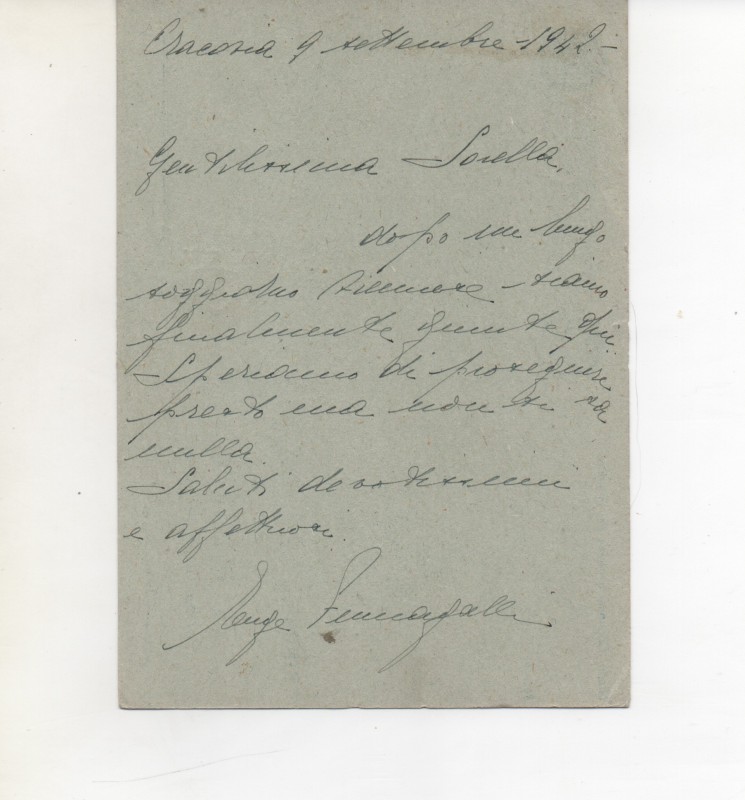 Cracovia 9 settembre - 1942 -
Gentilissima Sorella,
dopo un lungo
soggiorno siamo
finalmente giunte qui
Speriamo di proseguire
presto ma non si sa
nulla
Saluti devotissimi
e affettuosi.
Fumagalli